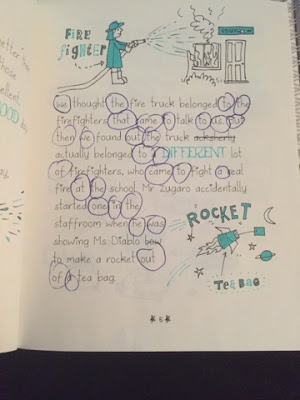 FIRE
FIGHTER
STAFFROOM
We thought the fire truck belonged to the
firefighters that came to talk to us but
then we found out the truck acksherly
actually belonged to a DIFFERENT lot
of firefighters, who came to fight a real
fire at the school. Mr Zugaro accidentally
started one in the
staffroom when he was
showing Ms Diablo how
to make a rocket out
of a tea bag.
ROCKET
TEA BAG
5